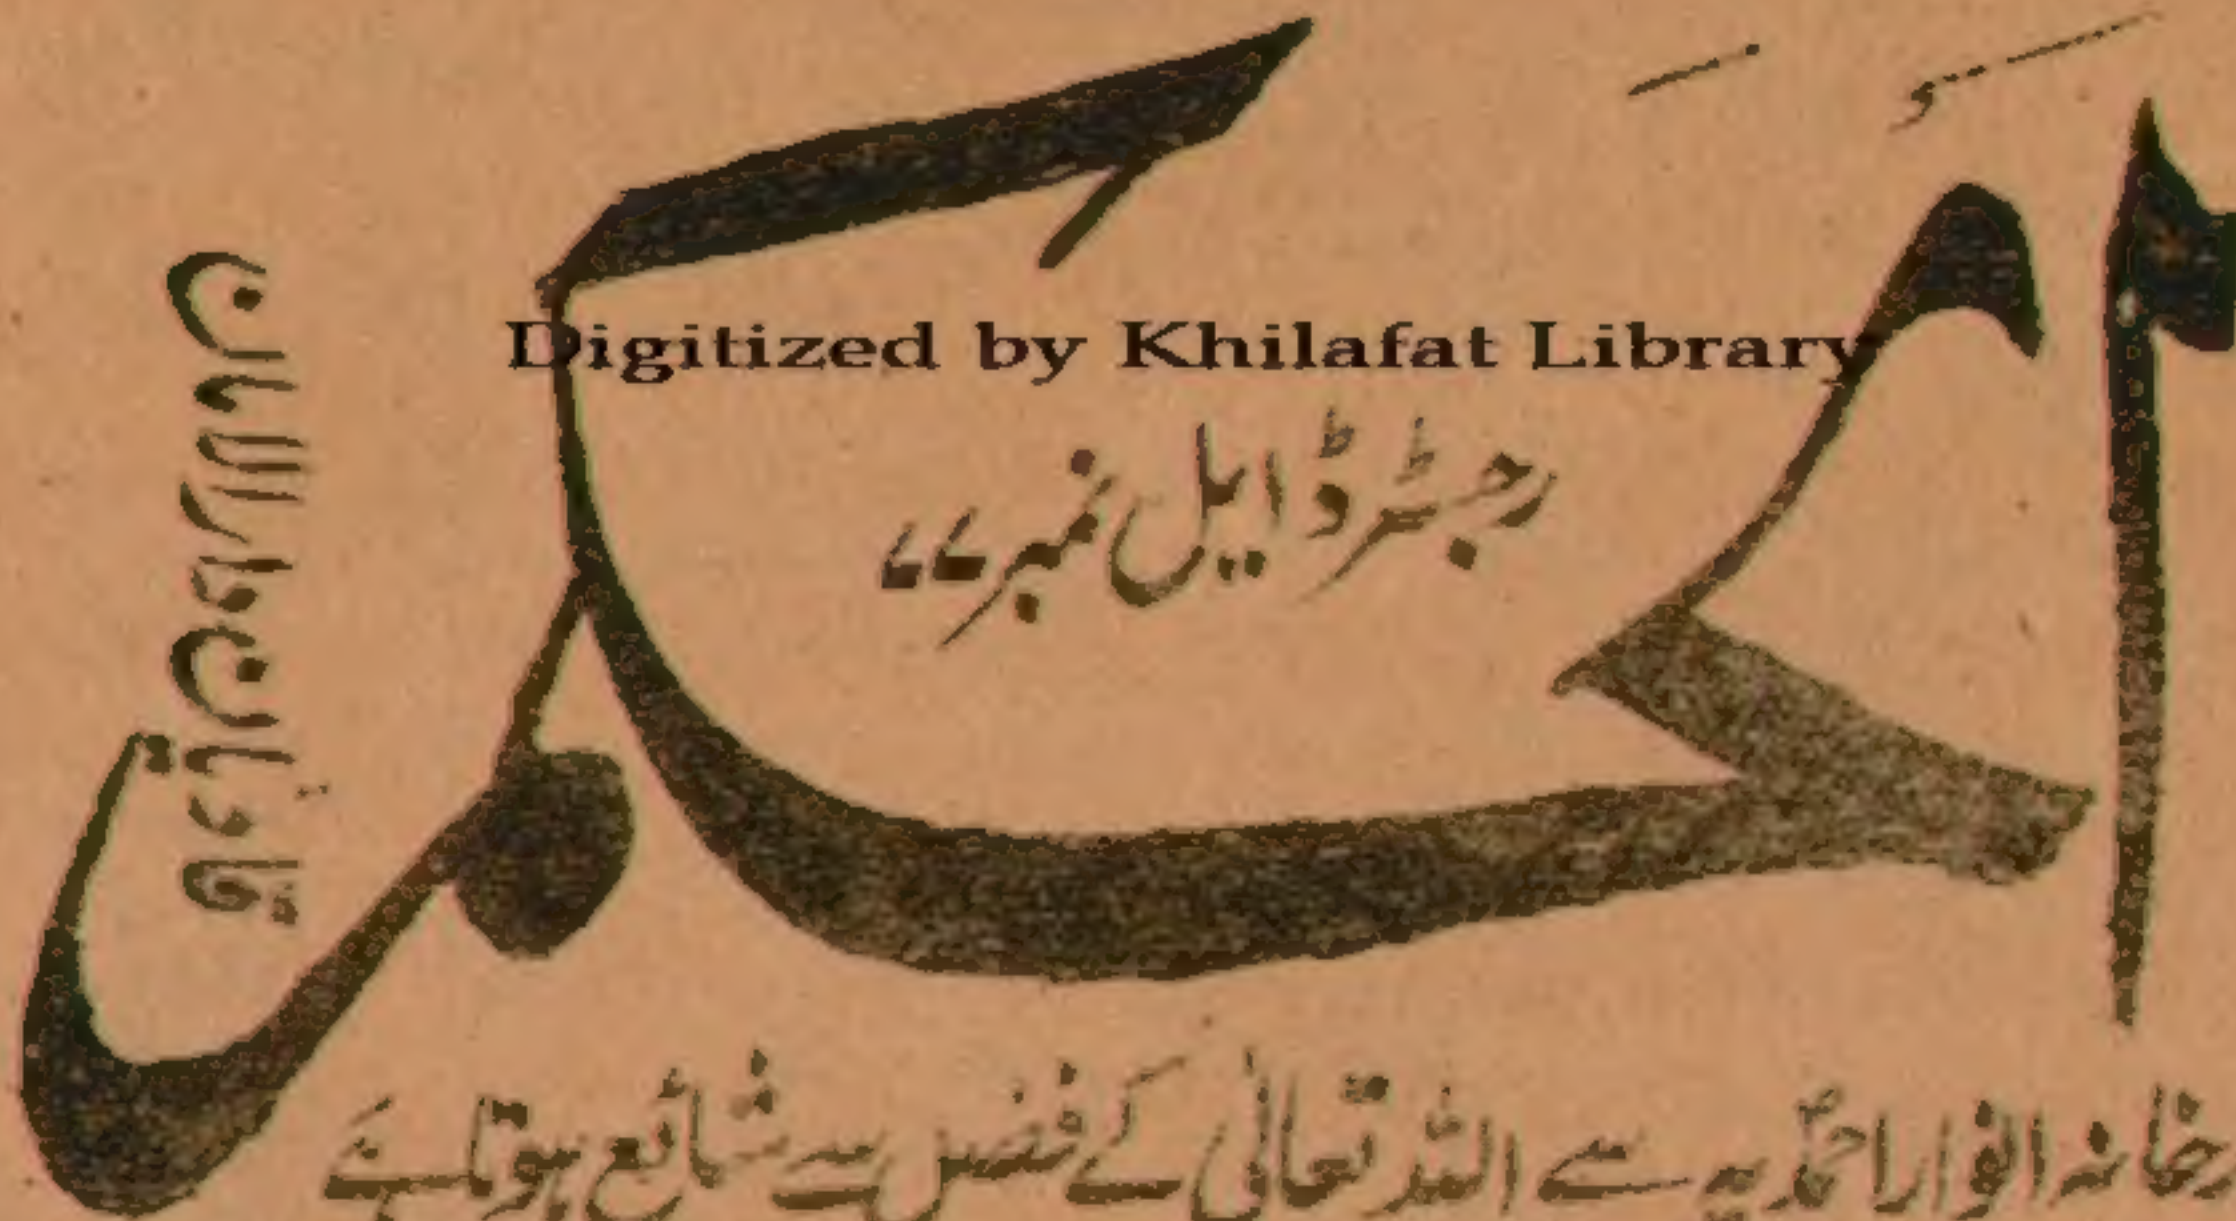 الحکم
Digitized by Khilafat Library
رجسٹرڈ ایل نمبر ۷۷
قادیان دارالامان
انوار احمدیہ سے اللہ تعالیٰ کے فضل سے شائع ہوتا ہے